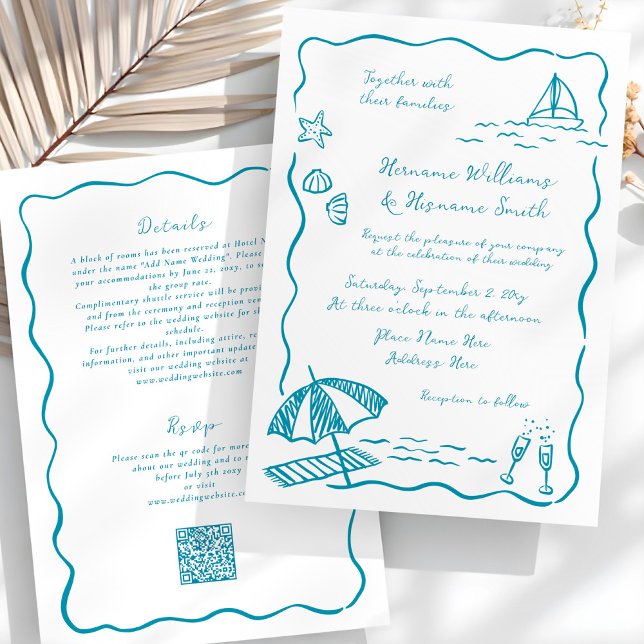 Together with
their families
Hername Williams
& Hisname Smith
Request the pleasure of your company
at the celebration of their wedding
Saturday, September 2, 20xy
At three o'clock in the afternoon
Place Name Here
Address Here
Reception to follow
Details
A block of rooms has been reserved at Hotel
under the name "Add Name Wedding". Please
your accommodations by June 22, 20xy, to
the group rate.
Complimentary shuttle service will be
and from the ceremony and reception
Please refer to the wedding website for
schedule.
For further details, including attire,
information, and other important
visit our wedding website at
www.weddingwebsite.com
Rsvp
Please scan the qr code for more
about our wedding and to
before July 5th 20xy
or visit
www.weddingwebsite.com